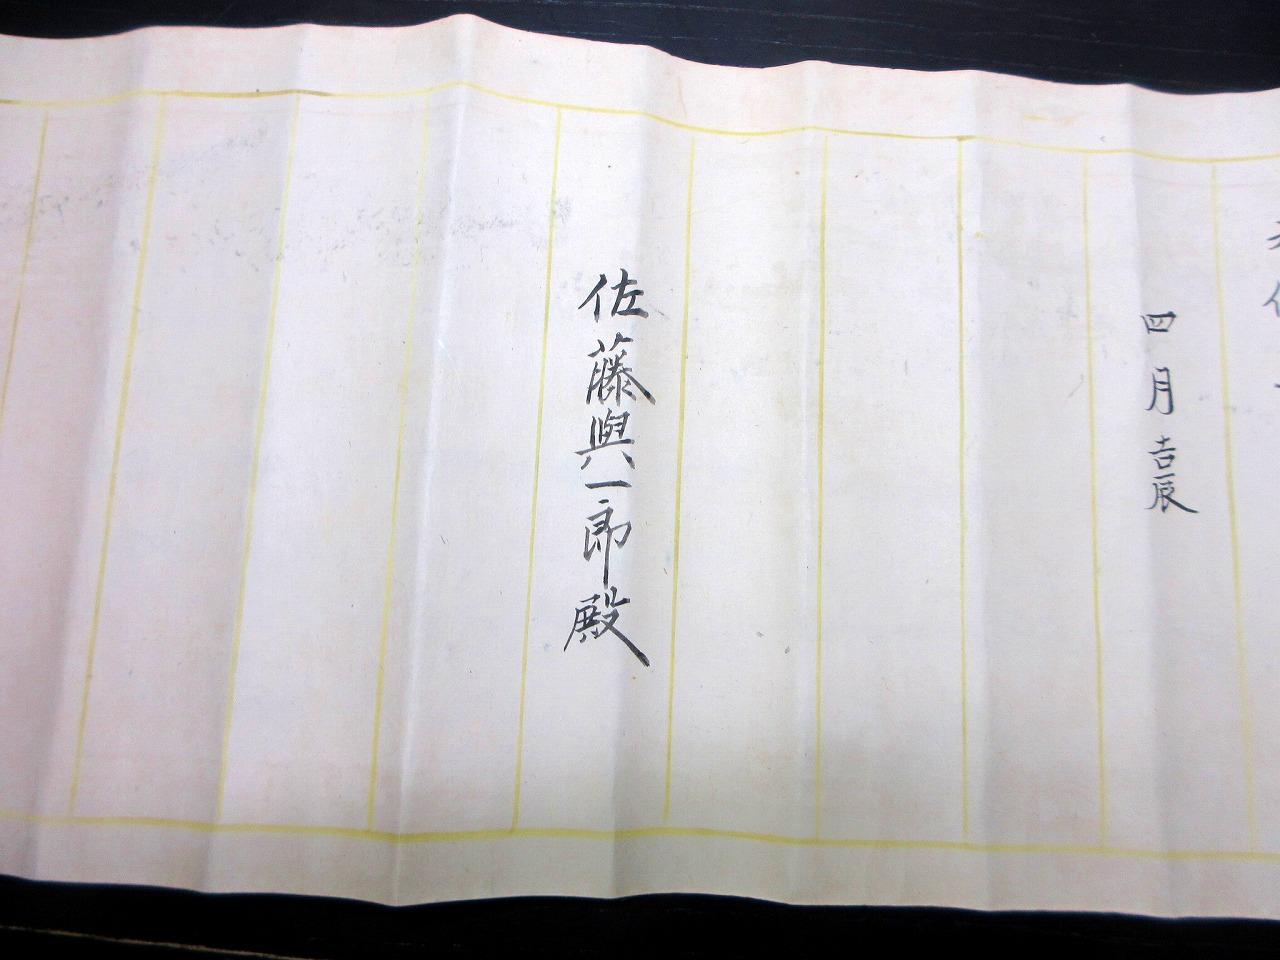 四月吉辰
佐藤與一郎殿